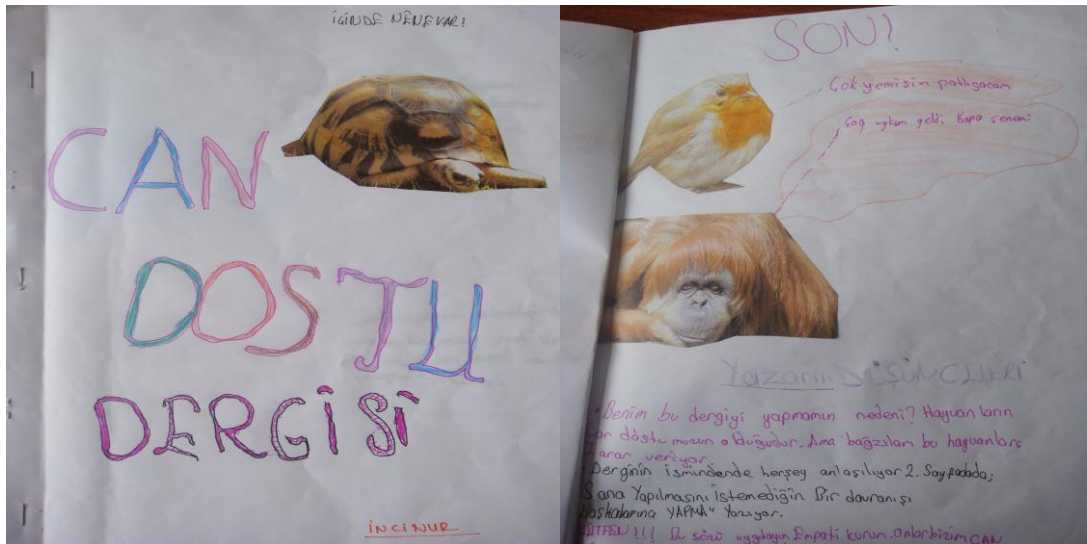 İÇİNDE NENE VAR!
CAN
DOSTU
DERGİSİ
İNCİNUR
SON!
Çok yemişin patlıyacam
Çog uykum geldi. Kapa çeneni
Yazarın DÜŞÜNCLERİ
Benim bu dergiyi yapmamın nedeni? Hayvanların
dostumuzun olduğudur. Ama bağzıları bu hayvanları
zarar veriyor.
Derginin ismindende herşey anlaşılıyor 2. Sayfadada;
Sana Yapılmasını İstemediğin Bir davranışı
başkalarına YAPMA" Yazıyor.
LÜTFEN!!! Bu sözü uygulayın Empati kurun. Onlar bizim CAN